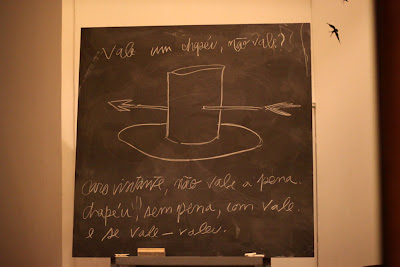 ¿Vale um chapéu, não vale?
vintante, não vale a pena.
chapéu!, sem pena, com vale.
e se vale – valeu.